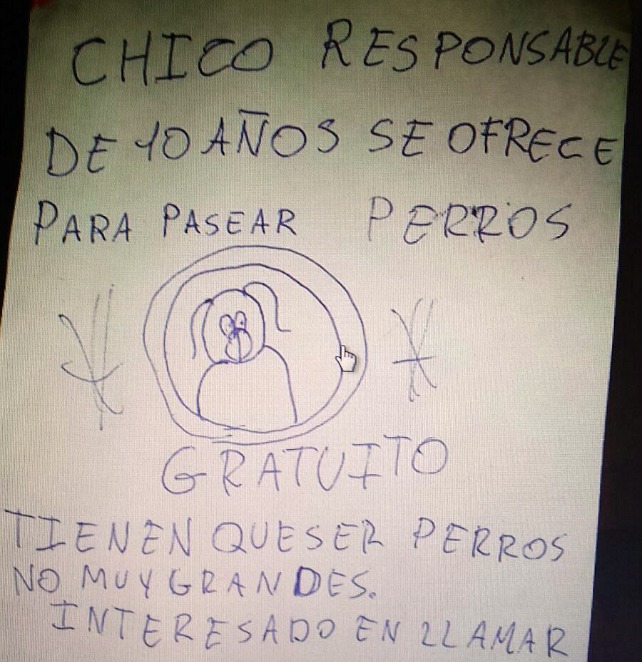 CHICO RESPONSABLE
DE 10 AÑOS SE OFRECE
PARA PASEAR PERROS
GRATUITO
TIENEN QUESER PERROS
NO MUY GRANDES.
INTERESADO EN LLAMAR